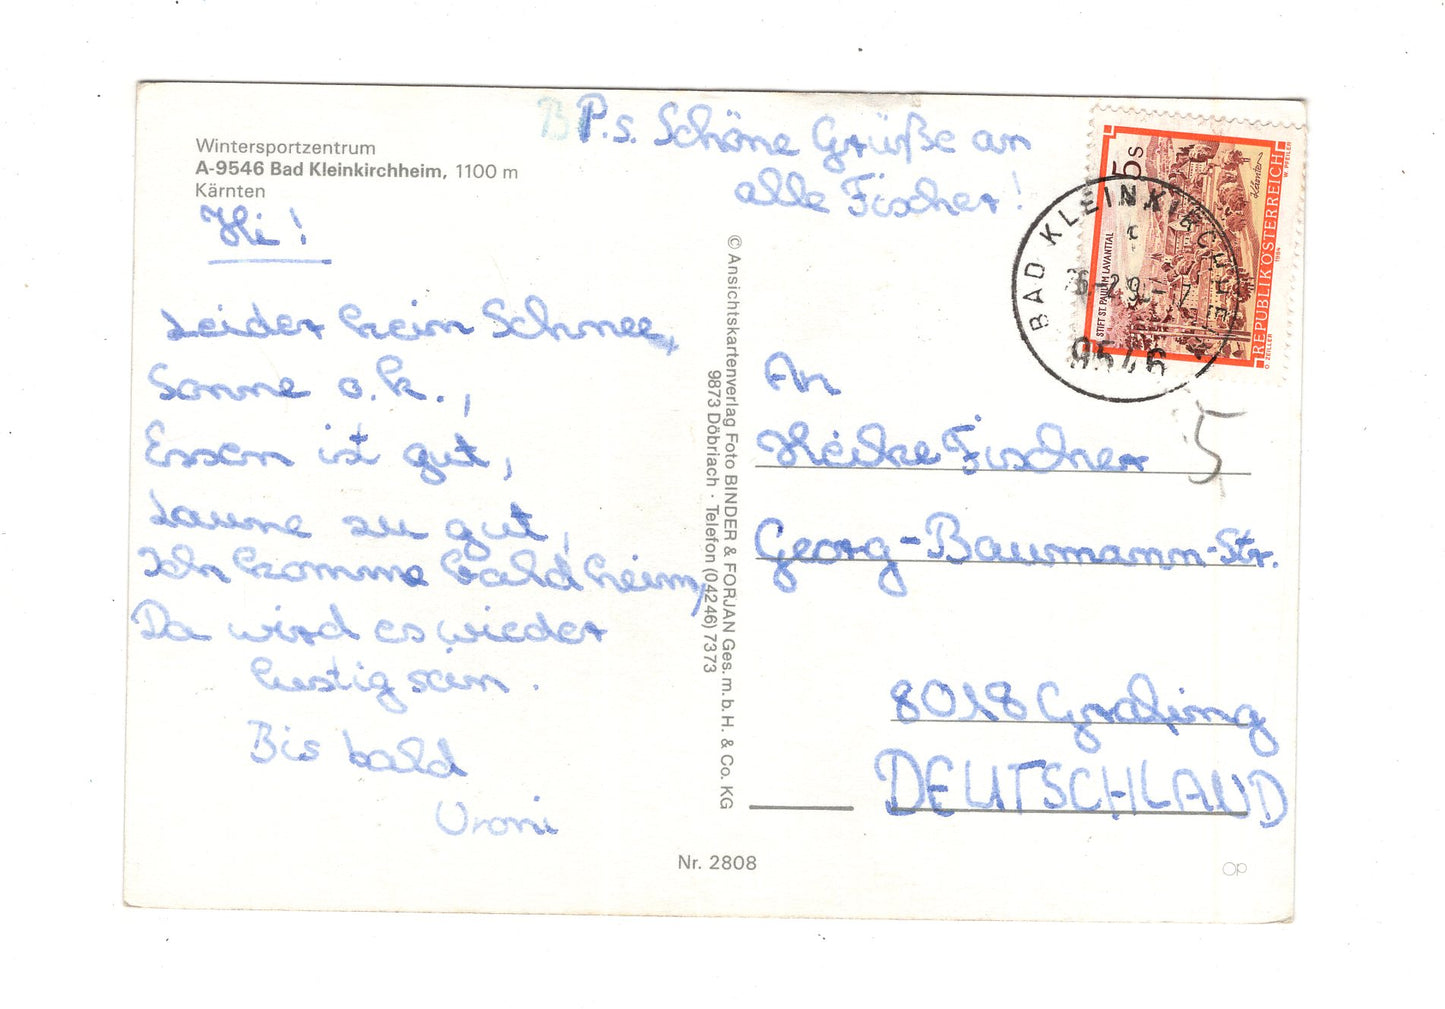 Wintersportzentrum
A-9546 Bad Kleinkirchheim, 1100 m
Kärnten
Hi!
Leider kein Schnee,
Sonne o.k.,
Essen ist gut,
Laune zu gut,
Ich komme bald heim,
Da wird es wieder
lustig sein.
Bis bald
Vroni
P.s. Schöne Grüße an
alle Fischer!
© Ansichtskartenverlag Foto BINDER & FORJAN Ges. m. b. H. & Co. KG
9873 Döbriach · Telefon (04246) 7373
5 S
STIFT ST. PAUL IM LAVANTTAL
Kärnten
REPUBLIK ÖSTERREICH
1984
W. PFEILER
O. ZEILLER
BAD KLEINKIRCHHEIM
9546
An
Heike Fischer
5
Georg-Baumann-Str.
8018 Grafing
DEUTSCHLAND
Nr. 2808
OP